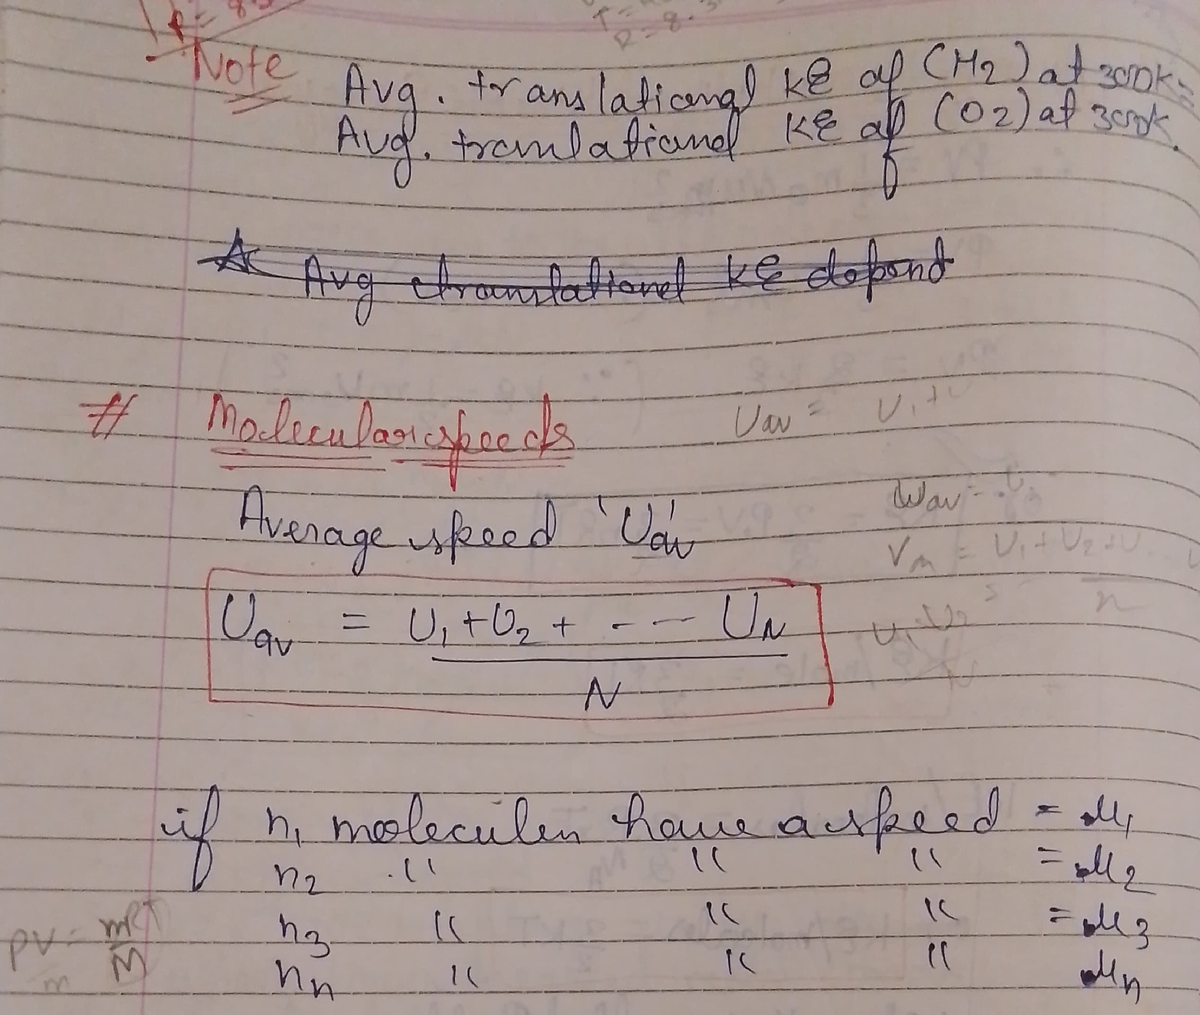 R = 8.3
Note Avg. translational KE of (H2) at 300K =
Avg. translational KE of (O2) at 300K.
Avg translational KE depend
# Molecular speeds
Uav = U1 +
Average speed 'Uav'
Vm = U1 + U2 + U
n
Uav = U1 + U2 + - -- UN
N
if n1 molecules have a speed = u1
n2 " " " = u2
n3 " " " = u3
nn " " " un
PV = mRT
m M